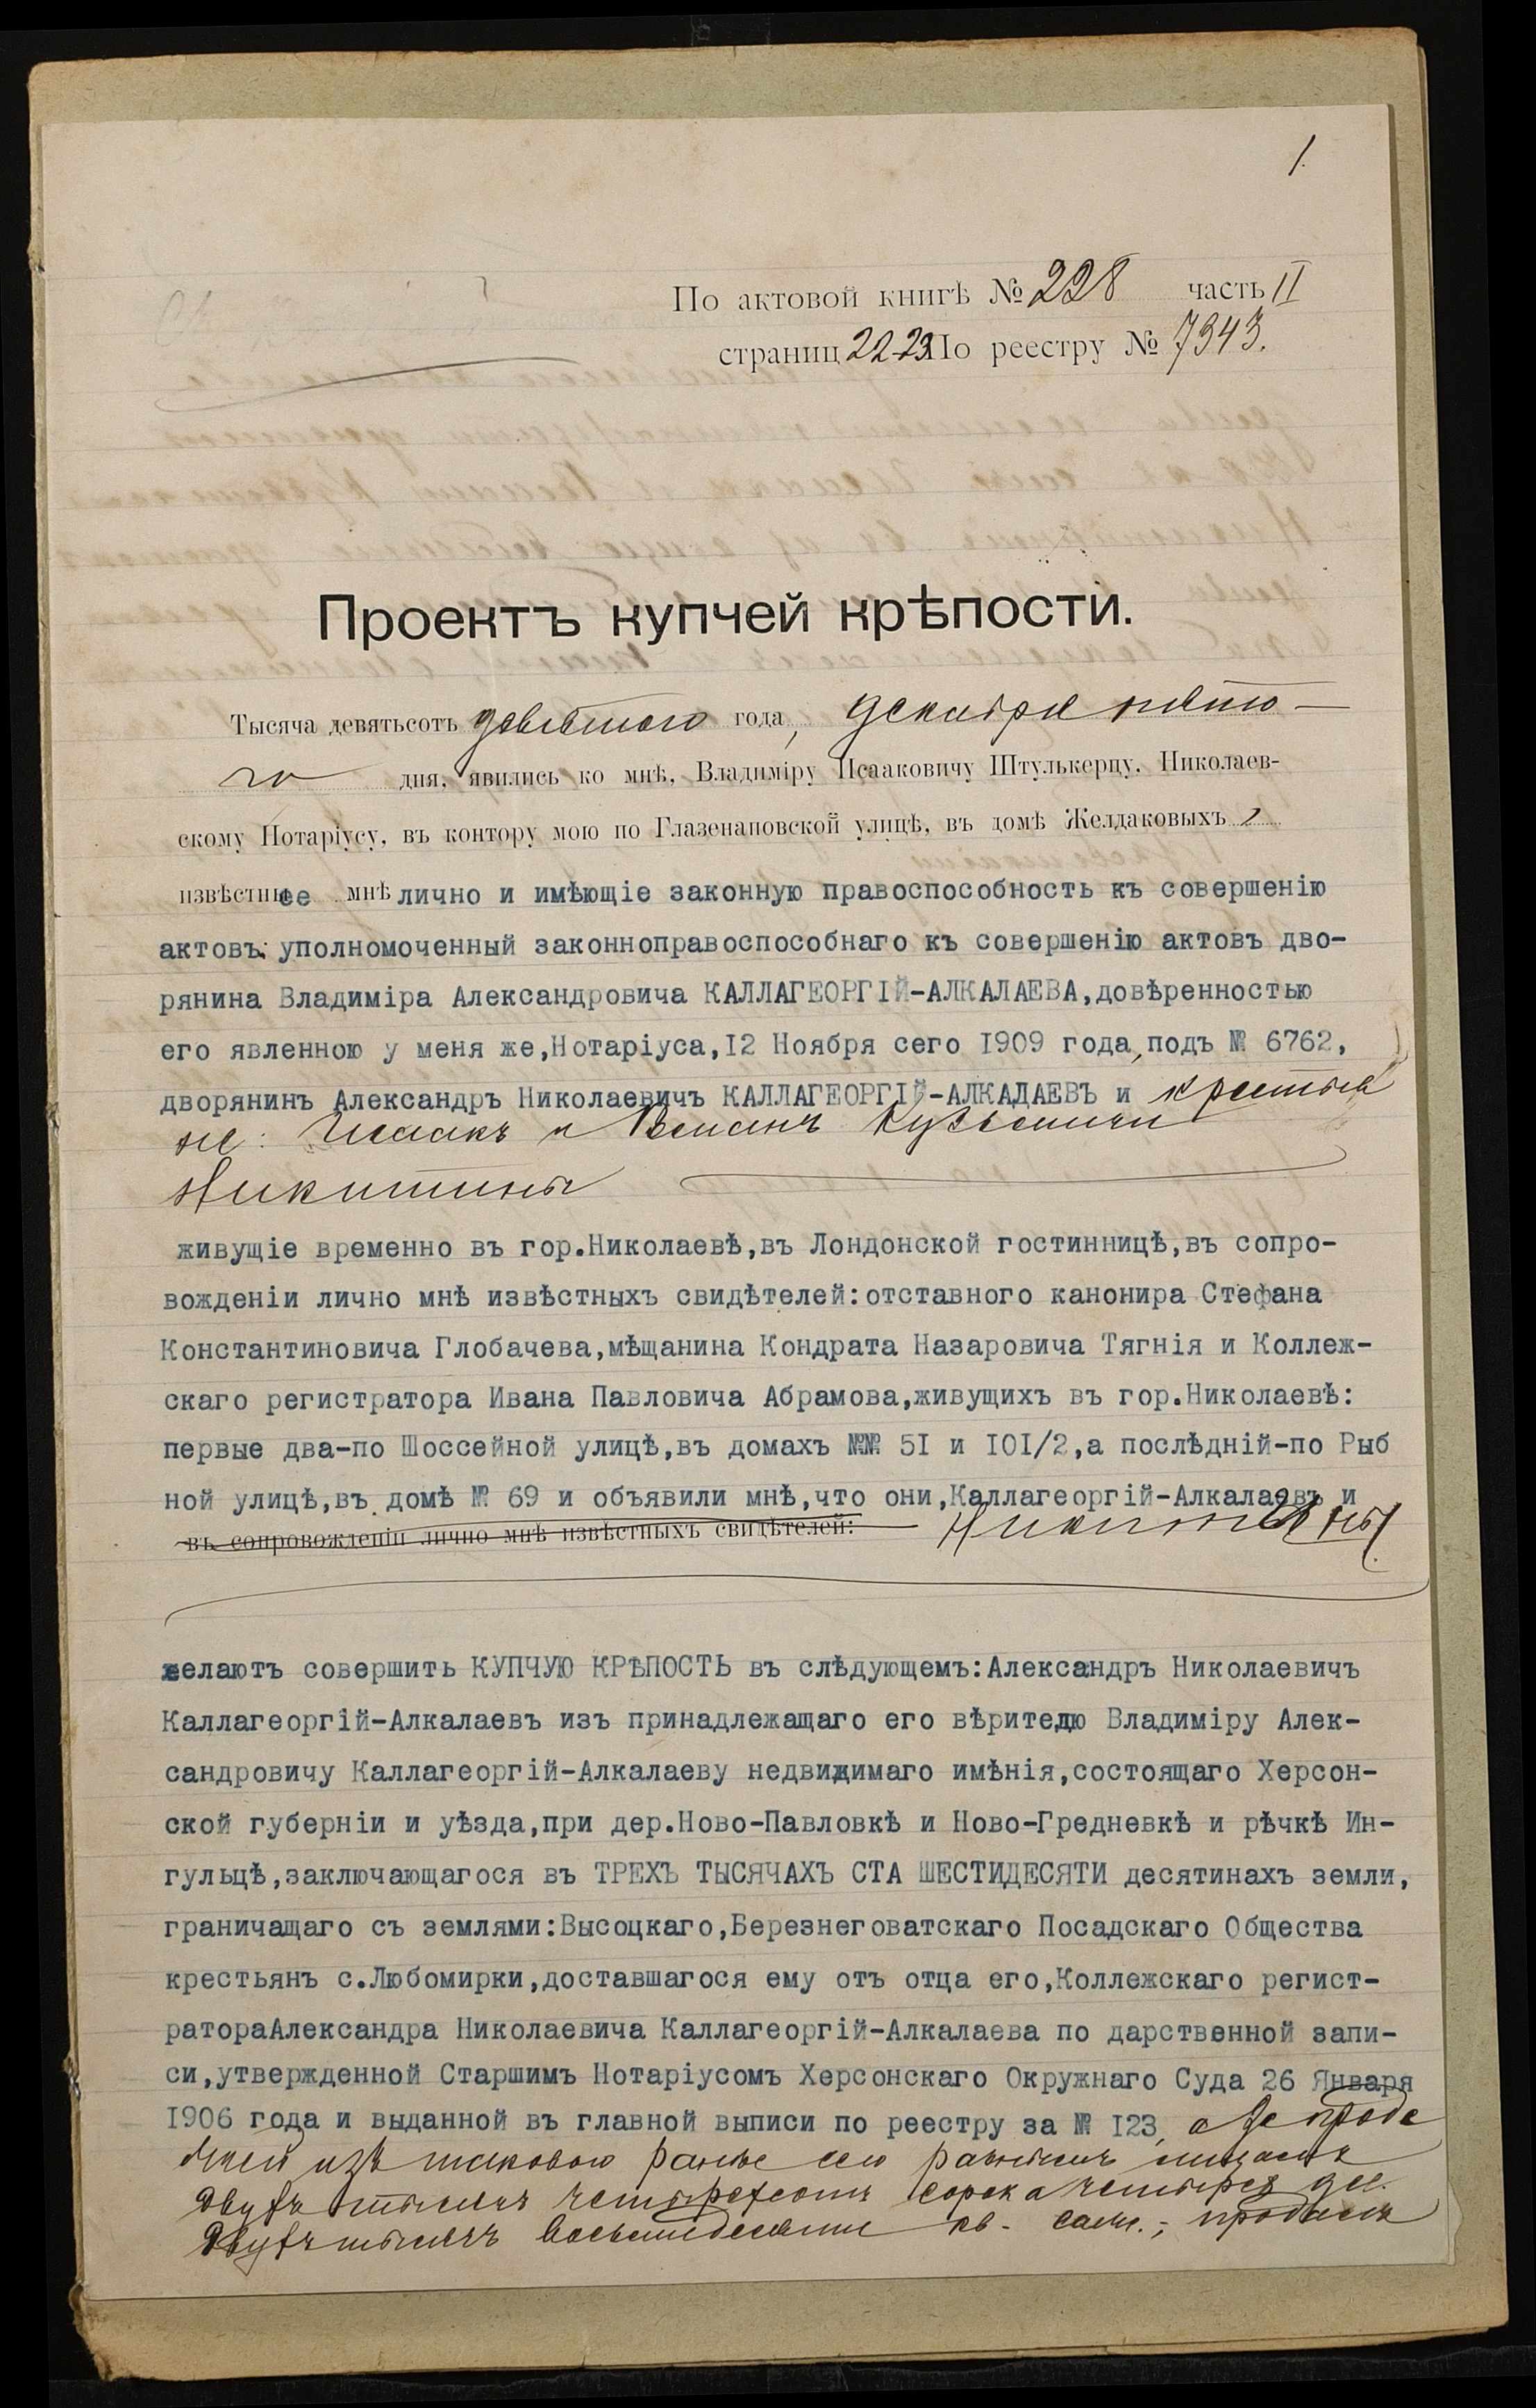 1.
По актовой книгѣ № 228 часть II
страниц 22-23 По реестру № 7343.
Проектъ купчей крѣпости.
Тысяча девятьсотъ девятаго года, декабря пято-
го дня, явились ко мнѣ, Владиміру Исааковичу Штулькерцу, Николаев-
скому Нотаріусу, въ контору мою по Глазенаповской улицѣ, въ домѣ Желдаковыхъ
извѣстные мнѣ лично и имѣющіе законную правоспособность къ совершенію
актовъ: уполномоченный законноправоспособнаго къ совершенію актовъ дво-
рянина Владиміра Александровича КАЛЛАГЕОРГІЙ-АЛКАЛАЕВА,довѣренностью
его явленною у меня же,Нотаріуса,I2 Ноября сего I909 года,подъ № 6762,
дворянинъ Александръ Николаевичъ КАЛЛАГЕОРГІЙ-АЛКАДАЕВЪ и крестья
не: Исаакъ и Кузьмичи
Никитины
живущіе временно въ гор.Николаевѣ,въ Лондонской гостинницѣ,въ сопро-
вожденіи лично мнѣ извѣстныхъ свидѣтелей:отставного канонира Стефана
Константиновича Глобачева,мѣщанина Кондрата Назаровича Тягнія и Коллеж-
скаго регистратора Ивана Павловича Абрамова,живущихъ въ гор.Николаевѣ:
первые два-по Шоссейной улицѣ,въ домахъ №№ 5I и I0I/2,а послѣдній-по Рыб
ной улицѣ,въ домѣ № 69 и объявили мнѣ,что они,Каллагеоргій-Алкалаевъ и
въ сопровожденіи лично мнѣ извѣстныхъ свидѣтелей: Никитины
желаютъ совершить КУПЧУЮ КРѢПОСТЬ въ слѣдующемъ:Александръ Николаевичъ
Каллагеоргій-Алкалаевъ изъ принадлежащаго его вѣрителю Владиміру Алек-
сандровичу Каллагеоргій-Алкалаеву недвижимаго имѣнія,состоящаго Херсон-
ской губерніи и уѣзда,при дер.Ново-Павловкѣ и Ново-Гредневкѣ и рѣчкѣ Ин-
гульцѣ,заключающагося въ ТРЕХЪ ТЫСЯЧАХЪ СТА ШЕСТИДЕСЯТИ десятинахъ земли,
граничащаго съ землями:Высоцкаго,Березнеговатскаго Посадскаго Общества
крестьянъ с.Любомирки,доставшагося ему отъ отца его,Коллежскаго регист-
ратораАлександра Николаевича Каллагеоргій-Алкалаева по дарственной запи-
си,утвержденной Старшимъ Нотаріусомъ Херсонскаго Окружнаго Суда 26 Января
I906 года и выданной въ главной выписи по реестру за № I23, а за прода
жей изъ таковаго ранѣе сего разнымъ лицамъ
двухъ тысячъ четырехсотъ сорока четырехъ дес.
двухъ тысячъ восьмидесяти кв. саж.; продалъ